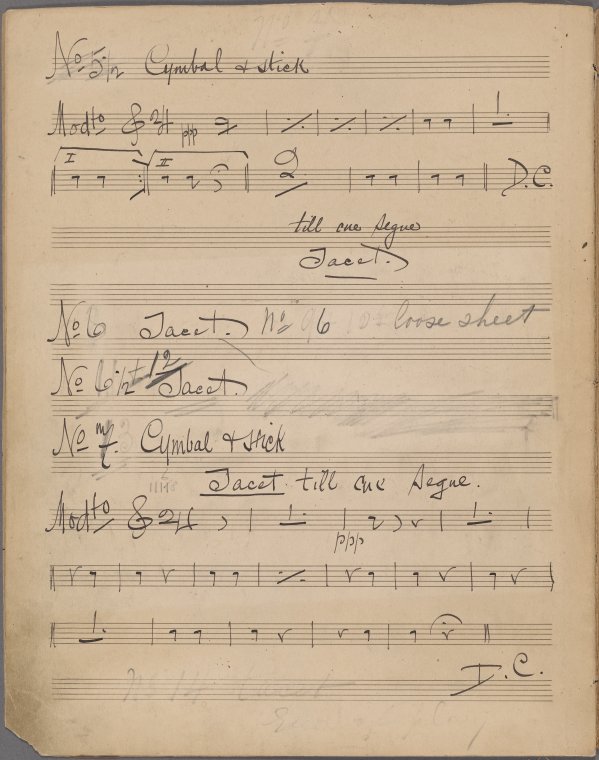 No 5 1/2 Cymbal & stick
Modto 2/4 ppp
I II 2 D.C.
till cue Segue
Tacet.
No 6 Tacet. No 6 loose sheet
No 6 1/2 Tacet.
No 7. Cymbal & stick
Tacet till cue Segue.
Modto 2/4 ppp
D.C.
No 14